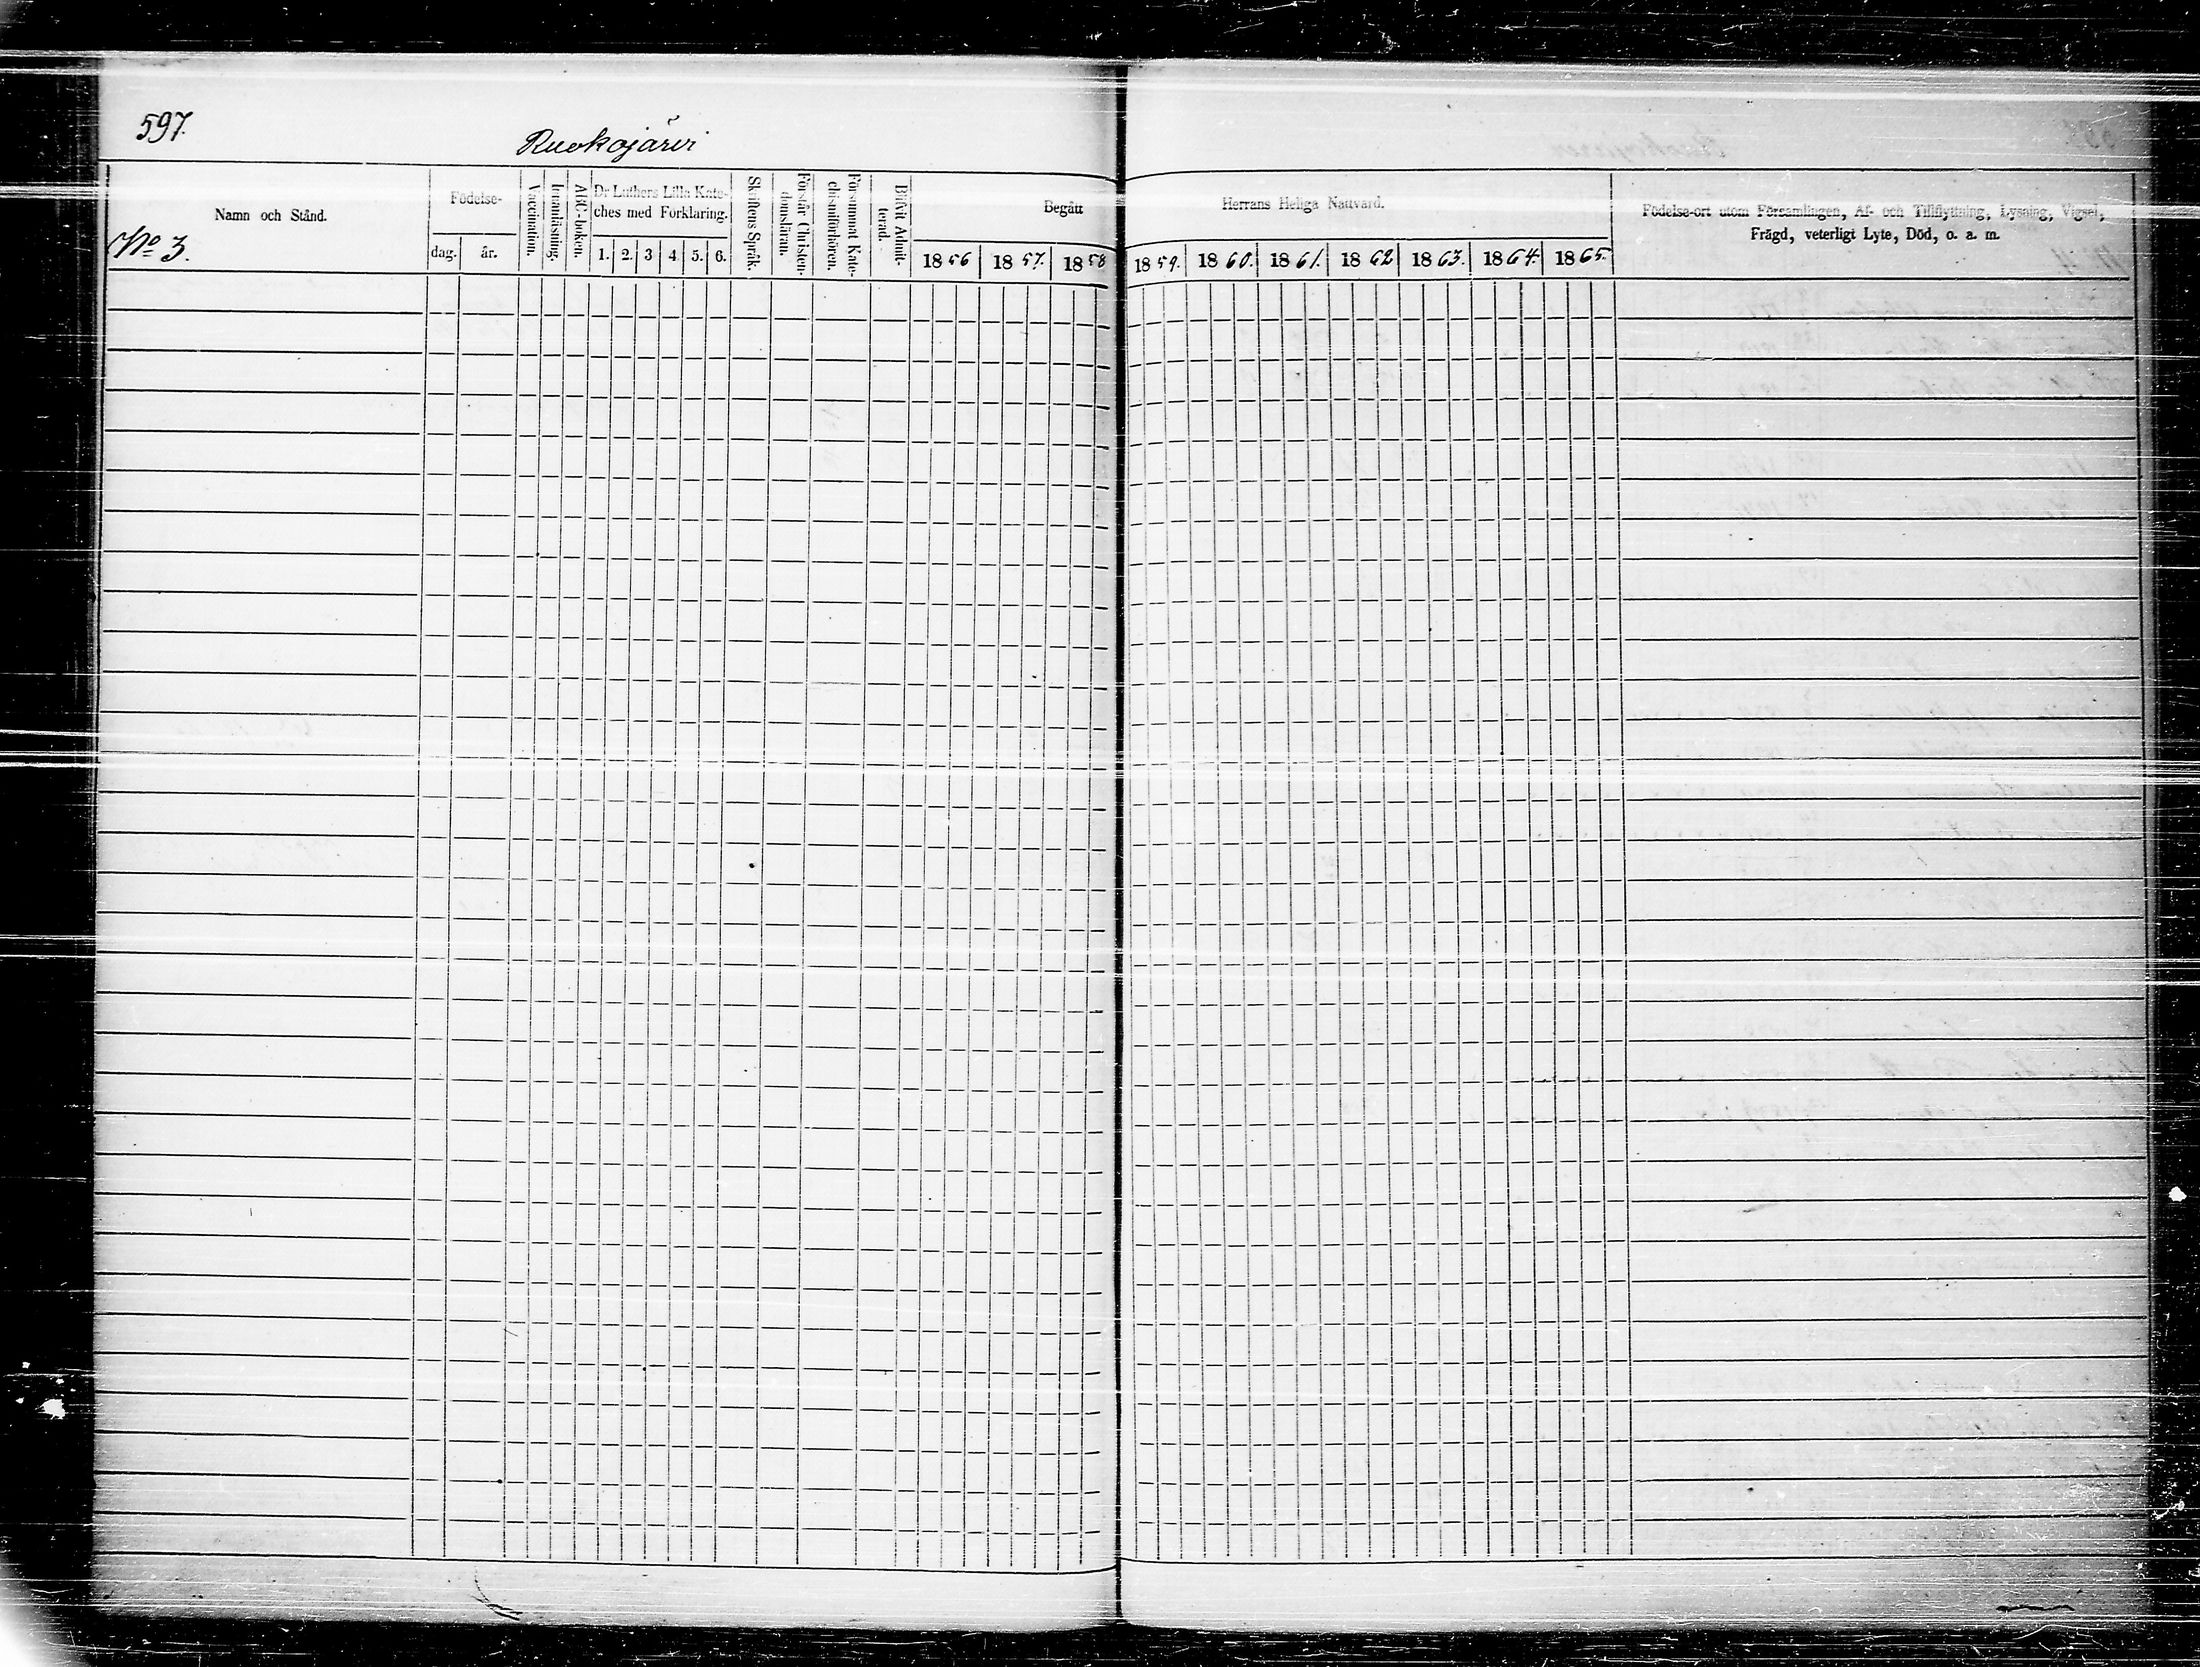 597.
Ruokojärvi
Namn och Stånd.
No 3.
Födelse-
dag. år.
Vaccination.
Innanläsning.
ABC-boken.
Dr Luthers Lilla Kate-
ches med Förklaring.
1. 2. 3 4. 5. 6.
Skriftens Språk.
Förstår Christen-
domsläran.
Försummat Kate-
chismiförhören.
Blifvit Admit-
terad.
Begått Herrans Heliga Nattvard.
1856 1857. 1858 1859. 1860. 1861. 1862 1863. 1864. 1865.
Födelse-ort utom Församlingen, Af- och Tillflyttning, Lysning, Vigsel,
Frägd, veterligt Lyte, Död, o. a. m.